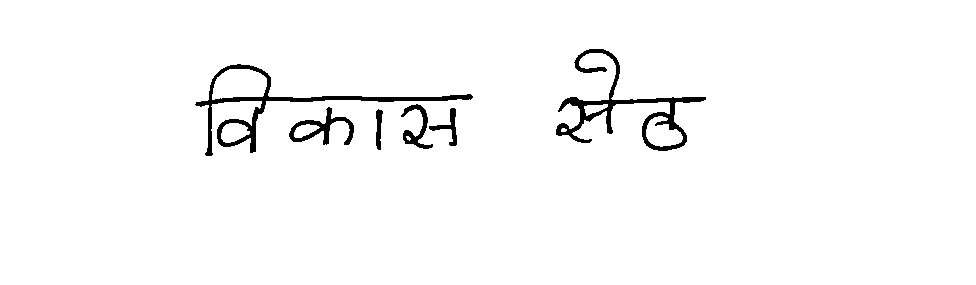 विकास सेठ